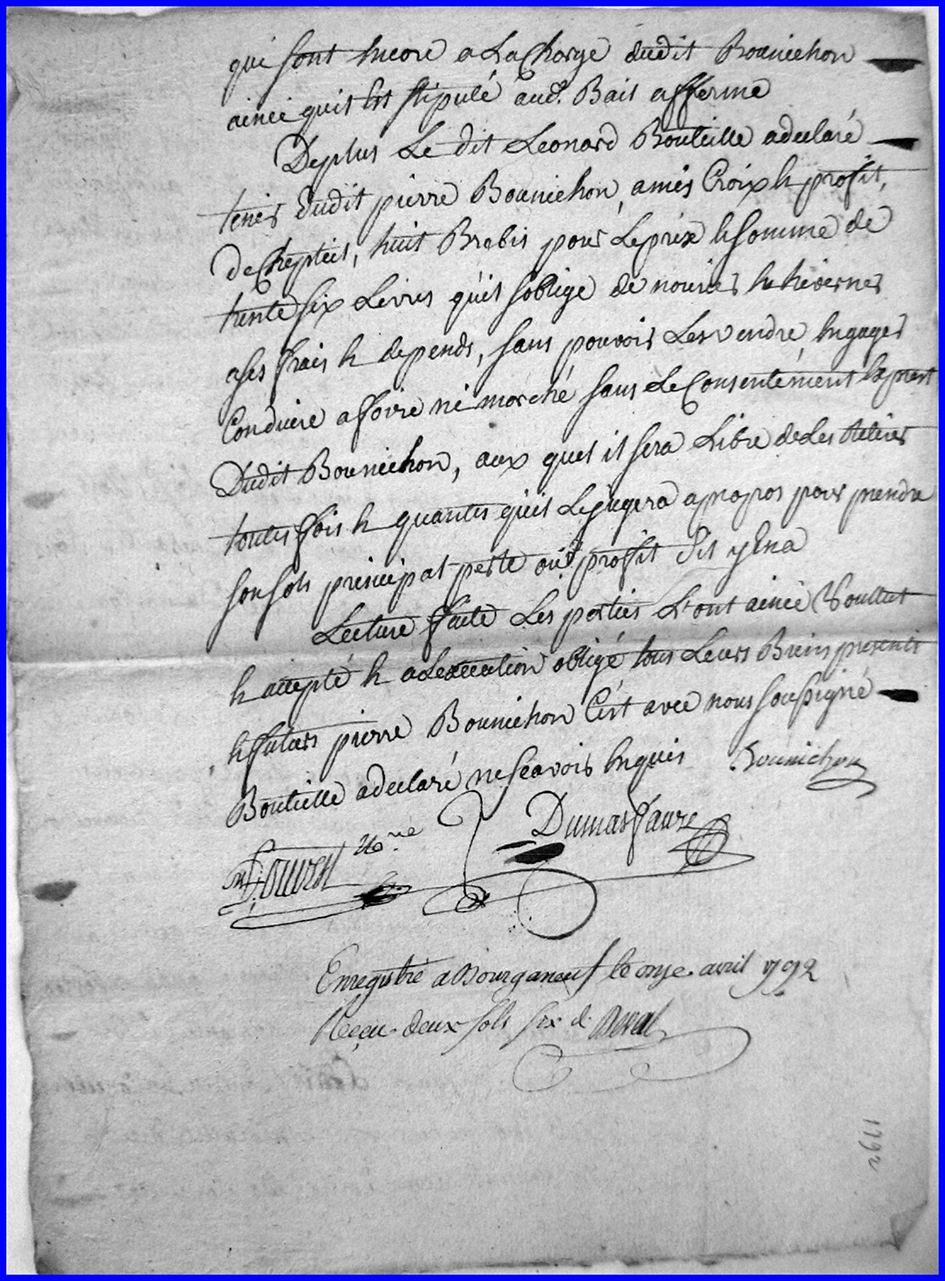 qui sont encore a La Charge dudit Bounichon
aincé quit Est stipulé aud. Bail afferme
Deplus Le dit Leonard Bouteille adeclaré
tenir dudit pierre Bounichon, amés Croix h profit,
de Cheptéil, huit Brebis pour Leprix h somme de
trente six Livres quis soblige de nourir h hiverner
ases frais h depends, sans pouvoir Les vendre Engager
Conduire affoire ni marché sans Le Consentement Expres
Dudit Bounichon, aux quel il sera Libre de Les Retirer
toutes fois h quantes quil Lejugera apropos pour prendre
son sols principal perte ou profit Sil y Ena
Lecture faite Les parties L'ont aincé Voullut
h accepté h a Lexecution obligé tous Leurs Biens presents
h futurs pierre Bounichon C'est avec nous soussigné
Bouteille adeclaré ne seavoir Enquis Bounichon
Dumasfaure
nre
Enregistré a Bourganeuf le onze avril 1792
Reçu deux sols six d
1792